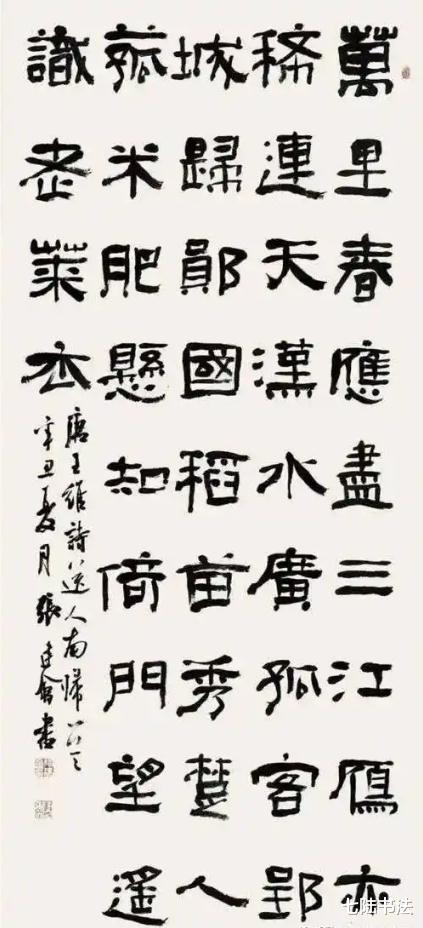 萬里春應盡三江鴈亦
稀連天漢水廣孤客郢
城歸鄖國稻苗秀楚人
菰米肥懸知倚門望遙
識老萊衣
唐王維詩送人南歸
辛丑夏月張建會書
七陆书法